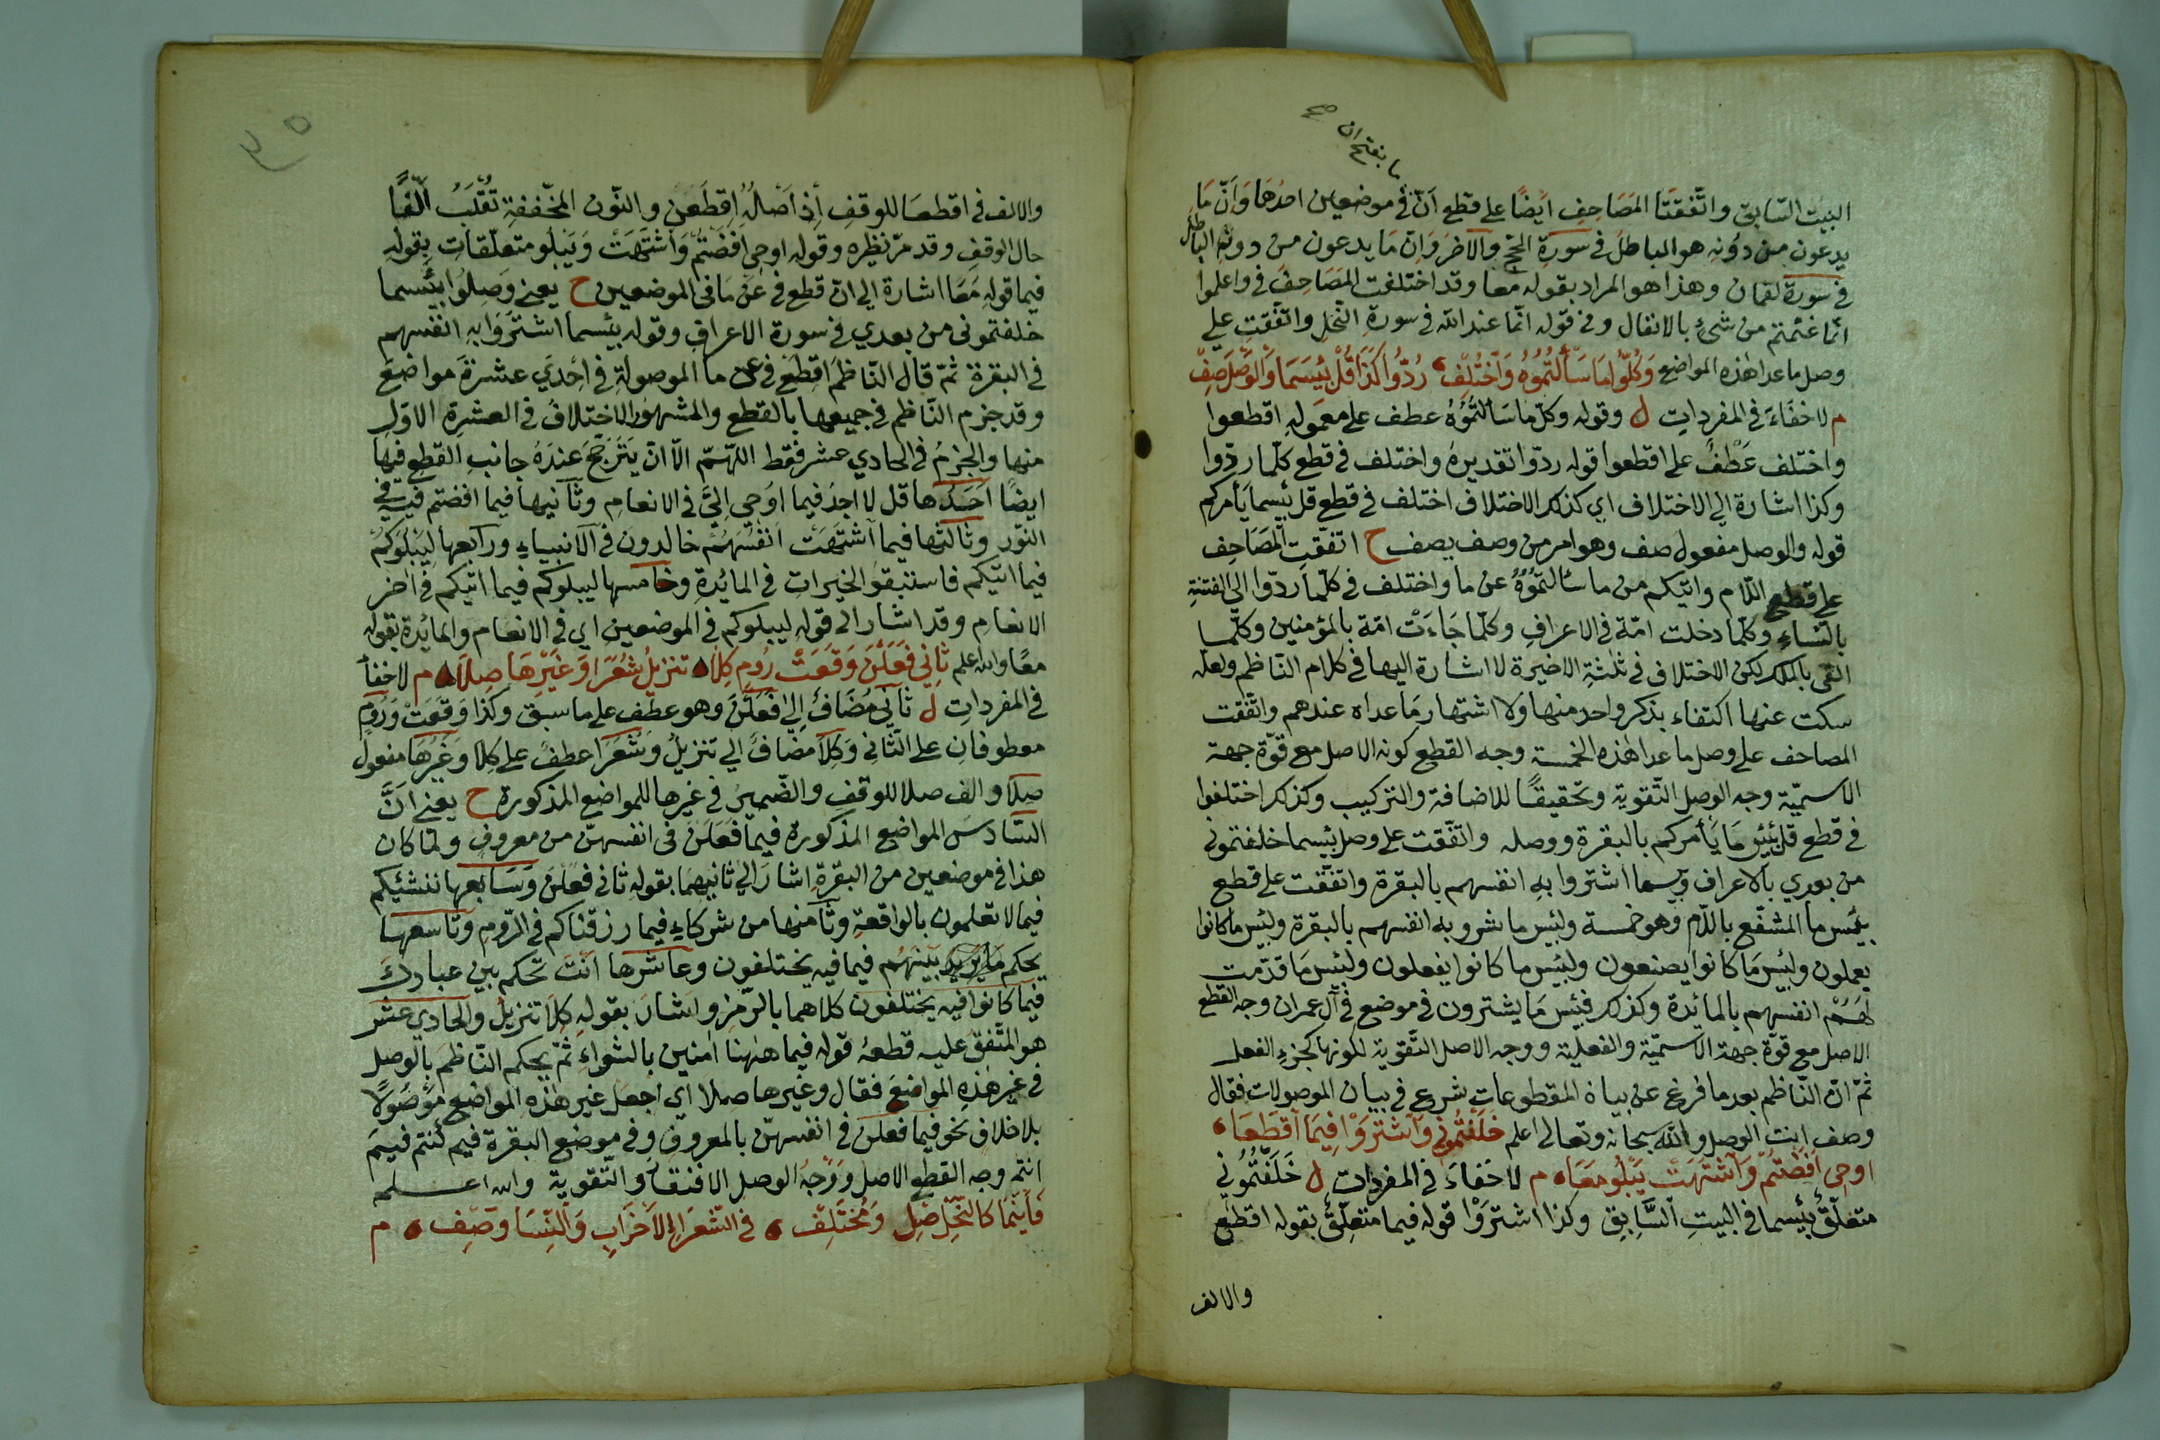 ما بفتح ان صح
البيت السّابق واتّفقتا المَصَاحِفِ ايضًا على قطع اَنّ في موضعين احدُهَا وَاَنّ مَا
يدعون من دونه هو الباطل في سورة الحَجّ والآخر وَانّ مَا يدعون من دونه الباطل
في سورة لقمان وهذا هو المراد بقوله مَعا وقد اختلفت المصَاحِف في واعلموا
انّما غنمتم من شئ بالانفال وفي قوله انّما عند الله في سورة النحل واتّفقت على
وصل ما عدا هٰذه المواضع وَكُلِّ مَا سَأَلْتُمُوهُ وَاخْتُلِفْ رُدُّوا كَذَا قُلْ بِئْسَمَا وَالْوَصْلَ صِفْ
م لا خفَاءَ في المفرداتِ ل وقوله وكلّ ما سَالتمُوُهُ عطف على معموله اقطعوا
واختلف عَطْفٌ على اقطعوا قوله ردّوا تقديرهُ واختلف في قطع كلّما ردّوا
وكذا اشارة الى الاختلاف اي كذلك الاختلاف اختلف في قطع قل بئسما يَأمركم
قوله والوصل مفعول صف وهو امر من وصف يصف ح اتفقت المصَاحِف
على قطع اللّام واتيكم من ما سَالتمُوُهُ عن ما واختلف في كلّما ردّوا الى الفتنةِ
بالنّساءِ وكلّما دخلت امّة في الاعرافِ وكلّما جَاءَتْ امّة بالمؤمنين وكلّما
القى بالملك لكن الاختلاف في ثلثةِ الاخيرة لا اشارة اليها في كلام النّاظم ولعلّه
سكت عنها اكتفاء بذكر واحد منها وَلا اشتهار مَا عداه عندهم واتّفقت
المصاحف على وصل ما عدا هٰذه الخمسة وجه القطع كونه الاصل مع قوّة جهة
الاسميّة وجه الوصل التّقوية وتحقيقًا للاضافة والتركيب وكذلك اختلفوا
في قطع قل بئس مَا يَأمركم بالبقرة ووصله واتّفقت على وصل بئسما خلفتموني
من بعدي بالاعراف وبئسما اشتروا به انفسهم بالبقرة واتفّقت على قطع
بئس ما المشفّع باللّام وهو خمسة ولبئس ما شروا به انفسهم بالبقرة ولبئس ما كانوا
يعملون ولبئس مَا كانوا يصنعون ولبئس ما كانوا يفعلون ولبئس مَا قدّمت
لهُمْ انفسهم بالمائدة وكذلك فبئس مَا يشترون في موضع في آل عمران وجه القطع
الاصل مع قوّة جهة الاسميّة والفعلية ووجه الاصل التّقوية لكونها كجزء الفعل
ثمّ انّ النّاظم بعد ما فرغ عن بيان المقطوعات شرع في بيان الموصولات فقال
وصف اثبت الوصل والله سبحانه وتعالى اعلم خَلَفْتُمُونِي وَاشْتَرَوْا فِيمَا اقْطَعَا
اوحى اَفَضْتُمْ وَاشْتَهَتْ يَبْلُو مَعَا م لا خفَاءَ في المفردات ل خَلَفْتُمُوني
متعلّقٌ ببئسما في البيتِ السَّابِقِ وكذا اشتَرَوْا قوله فيما متعلِّقٌ بقوله اقطع
والالف
والالف في اقطعَا للوقفِ اِذ اَصْلُهُ اِقطَعَنْ والنّون المخفّفةِ تُقْلَبُ اَلفًا
حال الوقف وقد مرّ نظيره وقوله اوحى اَفَضْتُمْ وَاشتَهَتْ وَيَبْلُو متعلّقات بقوله
فيما قوله مَعًا اشارة الى انّ قطع في عَنْ مَا في الموضعين ح يعني وَصِلُوا بئسما
خلفتموني من بعدي في سورة الاعراف وقوله بِئسما اشتَرَوا به انفسهم
في البقرة ثمّ قال النّاظمُ اقطع في عن ما الموصولة في اَحْدَي عشرَةَ مواضعَ
وقد جزم النّاظم في جميعها بالقطع والمشهور الاختلاف في العشرة الاوّل
منها والجزمُ في الحادي عشر فقط اللّهمّ الّا انْ يَتَرَجَّحَ عندَهُ جانب القطع فيهَا
ايضًا اَحَدُها قل لا اجدُ فيما اوُحى اِلَيَّ في الانعام وثَانيها فيما افضتم فيه في
النّور وثالثها فيما اشتَهَتْ انفسُهُمْ خالدونَ في الانبياءِ ورَابعها لِيَبْلُوَكُمْ
فيما اتيكم فاستبقوا الخيرات في المائدةِ وخامسها ليبلوكم فيما اتيكم في اخر
الانعام وقد اشار الى قوله ليبلوكم في الموضعين اي في الانعام والمائدة بقوله
معًا والله اعلم ثَانِي فَعَلْنَ وَقَعَتْ رُومٍ كِلَا تنزيلُ شُعَرَا وَغَيْرِهَا صِلَا م لا خفَأ
في المفرداتِ ل ثَانِي مُضَافٌ الى فَعَلْنَ وهو عطف على ما سبق وكذا وَقَعَتْ وَرُومٍ
معطوفانِ على الثّاني وَكِلَا مضافٌ الى تنزيلُ وَشُعَرَا عطف على كلا وَغَيْرَهَا مفعول
صِلَا والف صلا للوقف والضّميرُ في غيرها للمواضع المذكورة ح يعني اَنَّ
السّادسَ المواضع المذكورة فيما فَعَلْنَ في انفسهنّ من معروفٍ ولمّا كان
هذا في موضعين من البقرةِ اشارَ الى ثانيهما بقوله ثاني فعلن وَسَابعها ننشئكم
فيما لا تعلمون بالواقعةِ وثامنها من شركاءِ فيما رزقناكم في الرّومِ وتَاسعها
يحكم بَيْنَهُم فيما فيه يختلفون وعَاشرها اَنتَ تحكم بين عبادكَ
فيما كانوا فيه يختلفون كلاهما بالزّمرِ واشَارَ بقولهِ كِلَا تنزيلُ والحادي عشر
هو المتّفق عليه قطعهُ قوله فيما هٰهنا امنين بالشعراءِ ثمّ يحكم النّاظم بالوصل
في غير هٰذهِ المواضعَ فقال وغَيرها صلا اي اجعل غير هذه المواضع مَوْصُولًا
بلا خلافٍ نحو فيما فعلنَ في انفسهنّ بالمعروفِ وفي موضع البقرة فيم كنتم فيم
انتم وجه القطع الاصل وَوَجهُ الوصل الافتقار والتّقوية والله اعـــلم
فَاَيْنَمَا كَالنَّحْلِ صِلْ وَمُخْتَلِفْ فِي الشُّعَرَا الْاَحْزَابِ وَالنِّسَا وصِف م